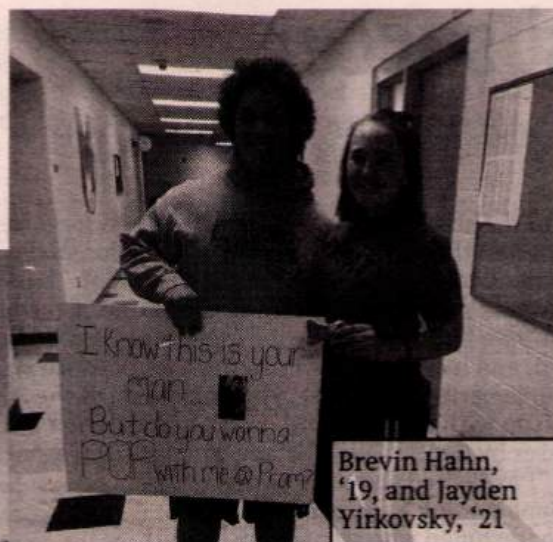 I Know this is your
man...
But do you wanna
POP with me @ Prom?
Brevin Hahn,
‘19, and Jayden
Yirkovsky, ‘21